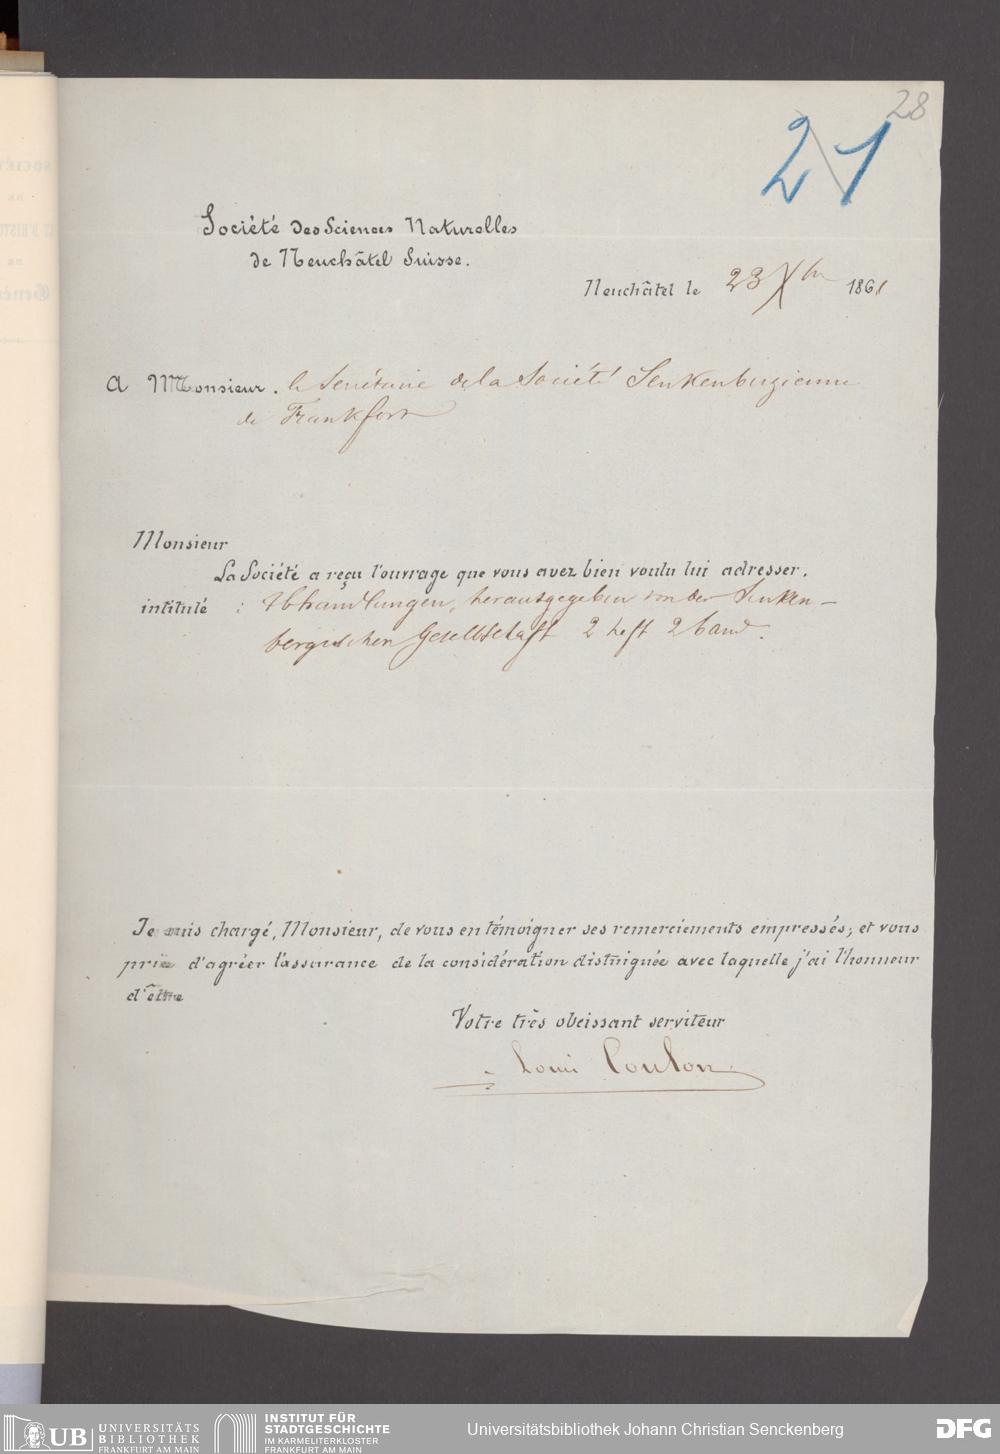 28
21
Société des Sciences Naturelles
de Neuchâtel Suisse.
Neuchâtel le 23 Xbre 1861
A Monsieur. le Secrétaire de la Société Senkenbergienne
de Frankfort
Monsieur
La Société a reçu l'ouvrage que vous avez bien voulu lui adresser,
intitulé : Abhandlungen, herausgegeben von der Senken-
bergischen Gesellschaft 2 heft 2 band.
Je suis chargé, Monsieur, de vous en témoigner ses remerciements empressés; et vous
prie d'agréer l'assurance de la considération distinguée avec laquelle j'ai l'honneur
d'être
Votre très obeissant serviteur
Louis Coulon
UB UNIVERSITÄTS
BIBLIOTHEK
FRANKFURT AM MAIN
INSTITUT FÜR
STADTGESCHICHTE
IM KARMELITERKLOSTER
FRANKFURT AM MAIN
Universitätsbibliothek Johann Christian Senckenberg
DFG